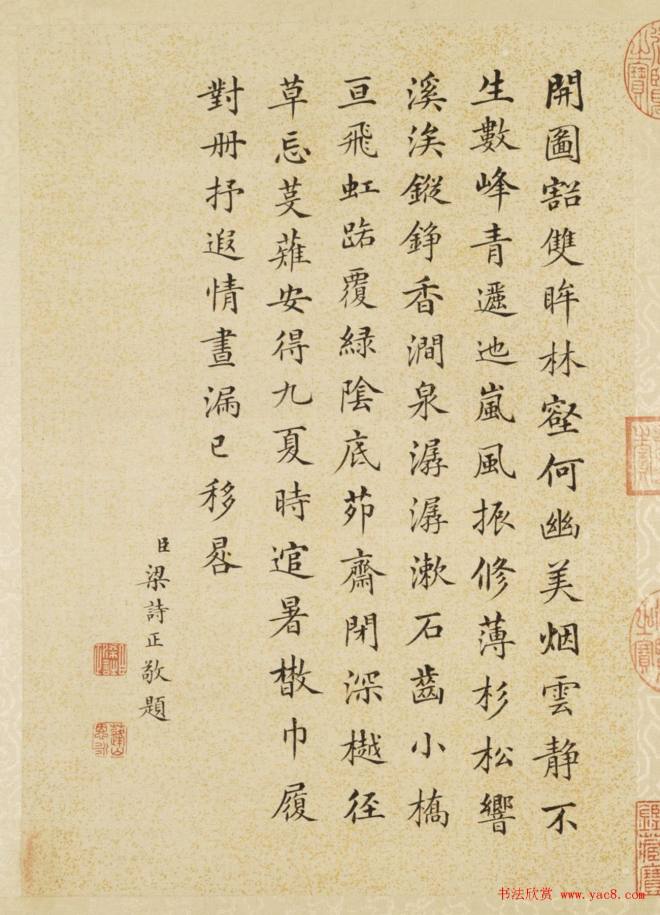 開圖豁雙眸林壑何幽美烟雲静不
生數峰青邐迆嵐風振修薄杉松響
溪涘鏦錚香澗泉潺潺漱石齒小橋
亘飛虹踏覆緑陰底茆齋閉深樾徑
草忘芟薙安得九夏時逭暑散巾履
對冊抒遐情晝漏已移晷
臣梁詩正敬題
书法欣赏 www.yac8.com